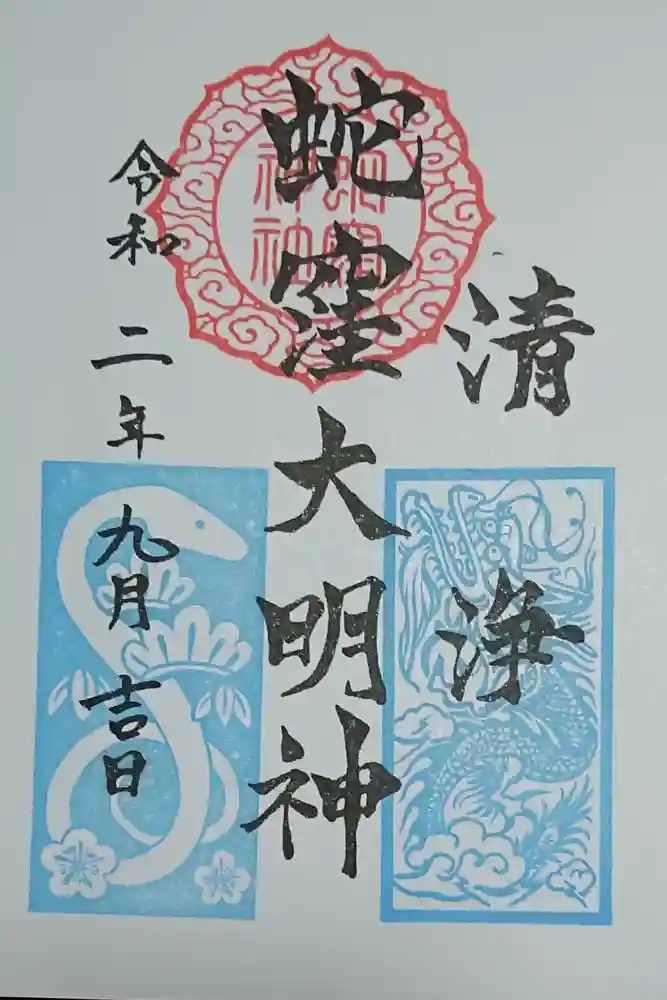 清浄
蛇窪大明神
蛇窪神社
令和二年九月吉日